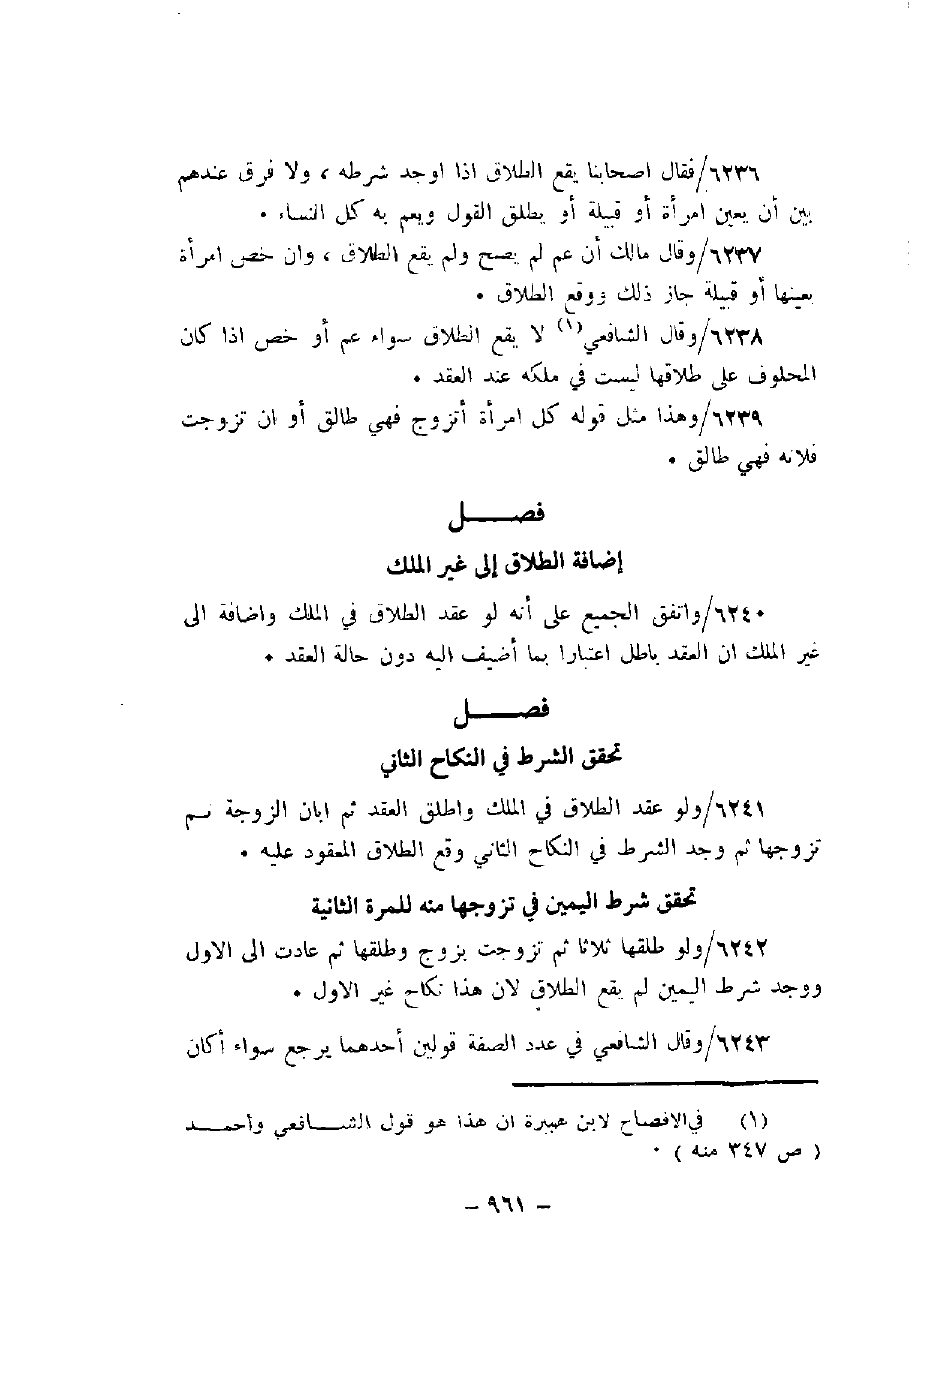 ٦٢٣٦/فقال اصحابنا يقع الطلاق اذا اوجد شرطه ، ولا فرق عندهم
بين أن يعين امرأة أو قبيلة أو يطلق القول ويعم به كل النساء ٠
٦٢٣٧/وقال مالك أن عم لم يصح ولم يقع الطلاق ، وان خص امرأة
بعينها أو قبيلة جاز ذلك ووقع الطلاق ٠
٦٢٣٨/وقال الشافعي(١) لا يقع الطلاق سواء عم أو خص اذا كان
المحلوف على طلاقها ليست في ملكه عند العقد ٠
٦٢٣٩/وهذا مثل قوله كل امرأة أتزوج فهي طالق أو ان تزوجت
فلانه فهي طالق ٠
فصــــل
إضافة الطلاق إلى غير الملك
٦٢٤٠/واتفق الجميع على أنه لو عقد الطلاق في الملك واضافة الى
غير الملك ان العقد باطل اعتبارا بما أضيف اليه دون حالة العقد ٠
فصــــل
تحقق الشرط في النكاح الثاني
٦٢٤١/ولو عقد الطلاق في الملك واطلق العقد ثم ابان الزوجة ثم
تزوجها ثم وجد الشرط في النكاح الثاني وقع الطلاق المعقود عليه ٠
تحقق شرط اليمين في تزوجها منه للمرة الثانية
٦٢٤٢/ولو طلقها ثلاثا ثم تزوجت بزوج وطلقها ثم عادت الى الاول
ووجد شرط اليمين لم يقع الطلاق لان هذا نكاح غير الاول ٠
٦٢٤٣/وقال الشافعي في عدد الصفة قولين أحدهما يرجع سواء أكان
(١) في الافصاح لابن هبيرة ان هذا هو قول الشــافعي وأحمــد
( ص ٣٤٧ منه ) ٠
– ٩٦١ –